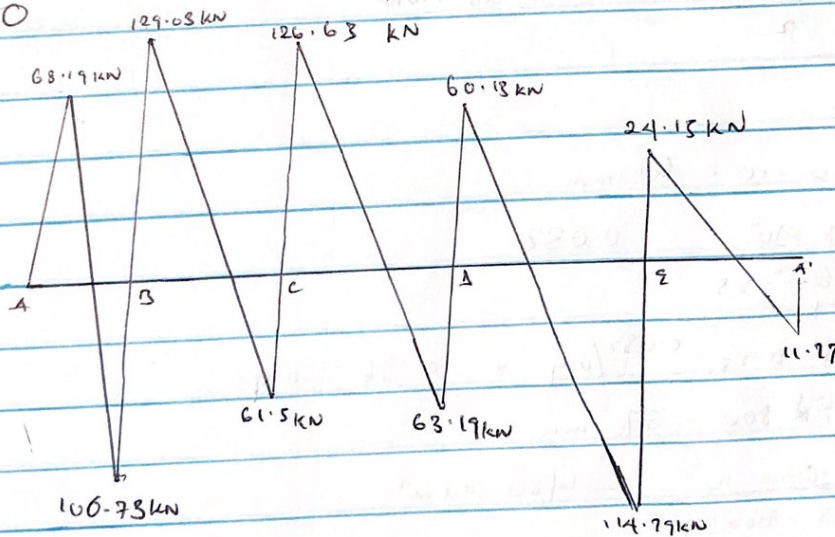 129.03 kN
126.63 kN
68.19 kN
60.13 kN
24.15 kN
A
B
C
D
E
A'
11.27
61.5 kN
63.19 kN
106.73 kN
114.79 kN